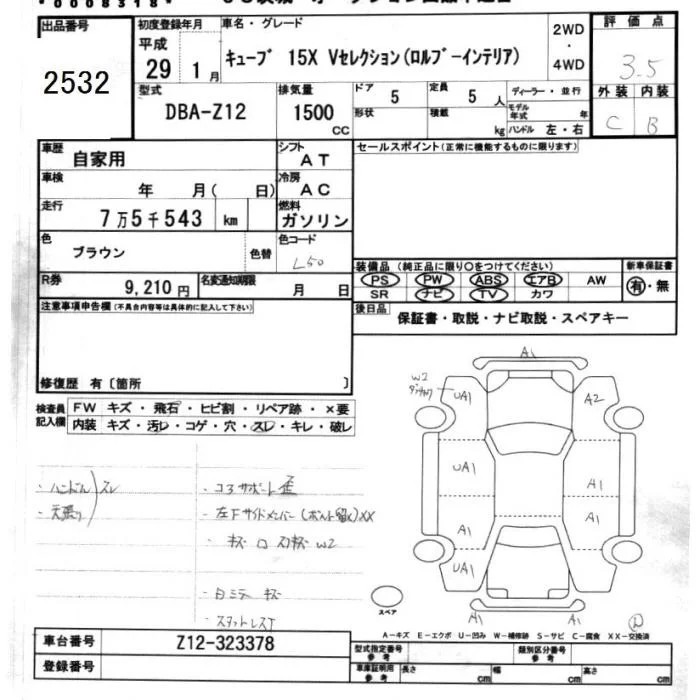 出品番号
2532
初度登録年月
平成
29 1月
車名・グレード
キューブ 15X Vセレクション(ロルブーインテリア)
2WD
・
4WD
評価点
3.5
外装 内装
C B
型式
DBA-Z12
排気量
1500
CC
ドア
5
定員
5 人
形状
積載
kg
ディーラー・並行
モデル年式 年
ハンドル 左・右
車歴
自家用
シフト
AT
車検
年 月( 日)
冷房
AC
走行
7万5千543 km
燃料
ガソリン
色
ブラウン
色替
色コード
L50
R券
9,210円
名変通知期限
月 日
セールスポイント(正常に機能するものに限ります)
装備品(純正品に限り○をつけてください)
PS PW ABS エアB AW
SR ナビ TV カワ
新車保証書
有・無
後日品
保証書・取説・ナビ取説・スペアキー
注意事項申告欄(不具合内容等は具体的に記入して下さい)
修復歴 有〔箇所 〕
検査員記入欄
FW キズ・飛石・ヒビ割・リペア跡・×要
内装 キズ・汚レ・コゲ・穴・スレ・キレ・破レ
・ハンドル スレ
・天張り
・コアサポート歪
・左下サイドメンバー(ボルト留く)XX
キズ
W2
・白ミラー キズ
・スタットレスT
A1
W2
UA1
A2
UA1
A1
A1
A1
UA1
A1
A1
A1
スペア
A-キズ E-エクボ U-凹み W-補修跡 S-サビ C-腐食 XX-交換済
車台番号
Z12-323378
登録番号
型式指定番号
参考
類別区分番号
参考
車庫証明用
参考
長さ cm
幅 cm
高さ cm